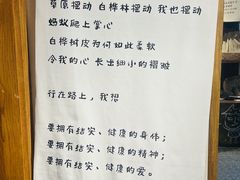 草原摆动 白桦林摆动 我也摆动
蚂蚁爬上掌心
白桦树皮为何如此柔软
令我的心 长出细小的褶皱
行在路上，我想
要拥有结实、健康的身体；
要拥有结实、健康的精神；
要拥有结实、健康的爱。